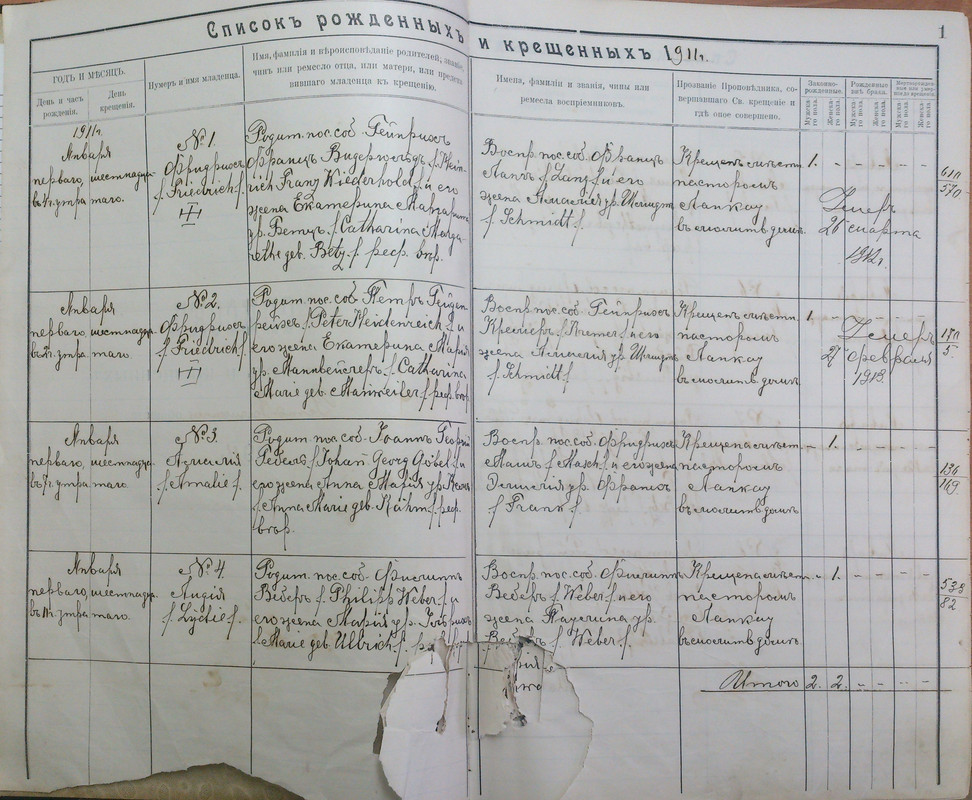 Списокъ рожденныхъ и крещенныхъ 1911г.
1
ГОДЪ И МѢСЯЦЪ.
День и часъ рожденія.
День крещенія.
Нумеръ и имя младенца.
Имя, фамилія и вѣроисповѣданіе родителей, званіе,
чинъ или ремесло отца, или матери, или предъя
вившаго младенца къ крещенію.
Имена, фамиліи и званія, чины или
ремесла воспріемниковъ.
Прозваніе Проповѣдника, со-
вершившаго Св. крещеніе и
гдѣ оное совершено.
Законно-
рожденные.
Рожденные
внѣ брака.
Мужска-
го пола.
Женска-
го пола.
Мужска-
го пола.
Женска-
го пола.
Мужска-
го пола.
Женска-
го пола.
1911г.
Января
перваго,
утра
шестнадца-
таго.
№ 1.
Фридрихъ
f. Friedrich f.
Родит. пос. соб. Гейнрихъ
Францъ Видергольдъ f. Hein-
rich Franz Wiederhold f. и его
жена Екатерина Маргарита
ур. Бетцъ f. Catharina Marga-
rethe geb. Betz f. реф. вѣр.
Воспр. пос. соб. Францъ
Лангъ f. Lanz f. и его
жена Амалія ур. Шмидтъ
f. Schmidt f.
Крещенъ
пасторомъ
Лапкау
въ молитв. домѣ.
1. - - - - -
Умеръ
26 марта
1912г.
610
570
Января
перваго,
утра
шестнадца-
таго.
№ 2.
Фридрихъ
f. Friedrich f.
Родит. пос. соб. Петръ Гейден-
рейхъ f. Peter Heidenreich f. и
его жена Екатерина Марія
ур. Манвейлеръ f. Catharina
Marie geb. Manweiler f. реф. вѣр.
Воспр. пос. соб. Гейнрихъ
Кремеръ f. Kramer f. и его
жена Амалія ур. Шмидтъ
f. Schmidt f.
Крещенъ
пасторомъ
Лапкау
въ молитв. домѣ.
1. - - - - -
Умеръ
27 февраля
1913.
170
5
Января
перваго,
утра
шестнадца-
таго.
№ 3.
Амалія
f. Amalie f.
Родит. пос. соб. Іоганъ Георгъ
Гебель f. Johan Georg Göbel f. и
его жена Анна Марія ур. Кемъ
f. Anna Marie geb. Kühm f. реф.
вѣр.
Воспр. пос. соб. Фридрихъ
Машъ f. Masch f. и его жена
ур. Франкъ
f. Frank f.
Крещена
пасторомъ
Лапкау
въ молитв. домѣ.
- 1. - - - -
136
169
Января
перваго,
утра
шестнадца-
таго.
№ 4.
Лидія
f. Lydie f.
Родит. пос. соб. Филиппъ
Веберъ f. Philipp Weber f. и
его жена Марія ур.
f. Marie geb. Ullrich f.
Воспр. пос. соб. Филиппъ
Веберъ f. Weber f. и его
жена Паулина ур.
Веберъ f. Weber f.
Крещена
пасторомъ
Лапкау
въ молитв. домѣ.
- 1. - - - -
538
82
Итого 2. 2. - - - -